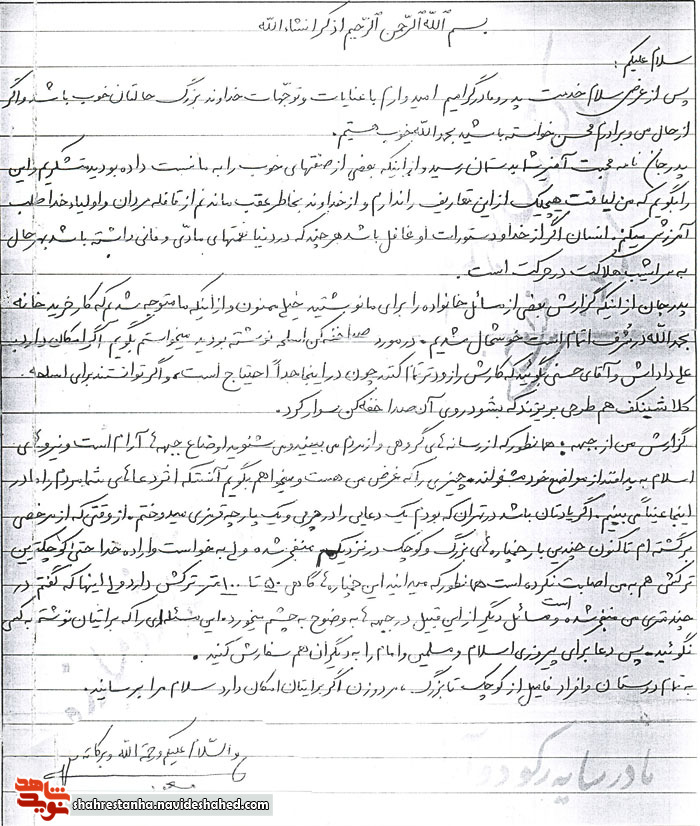 بسم الله الرحمن الرحیم اذکر انشاءالله
سلام علیکم:
پس از عرض سلام خدمت پدر و مادر گرامیم امیدوارم با عنایات و توجهات خداوند بزرگ حالتان خوب باشد و اگر
از حال من و برادرم محسن خواسته باشید بحمدالله خوب هستیم.
پدر جان نامه محبت آمیز شما بدستمان رسید و از اینکه بعضی از صفتهای خوب را به ما نسبت داده بودید متشکریم و این
را بگویم که من لیاقت هیچیک از این تعاریف را ندارم و از خداوند بخاطر عقب ماندنم از قافله مردان و اولیاء خدا طلب
آمرزش میکنم. انسان اگر از خدا و دستورات او غافل باشد هر چند که در دنیا نعمتهای مادی و فانی داشته باشد بهر حال
به سراشیب هلاکت در حرکت است.
پدر جان از اینکه گزارش بعضی از مسائل خانواده را برای ما نوشتید خیلی ممنون و از اینکه ما متوجه شدیم که کار خرید خانه
بحمدالله در شرف اتمام است خوشحال شدیم. در مورد صدا خفه کن اسلحه نوشته بودید میخواستم بگویم اگر امکان دارد به
علی داداش و آقای حسنی بگوئید که کارش را زودتر تمام کنند چون در اینجا جداً احتیاج است، و اگر توانستند برای اسلحه
کلاشینکف هم طرحی بریزند که بشود روی آن صدا خفه کن سوار کرد.
گزارش من از جبهه: همانطور که از رسانه های گروهی و از مردم می بینید و می شنوید اوضاع جبهه ها آرام است و نیروهای
اسلام به پدافند از مواضع خود مشغولند. چیزی را که عرض می هست و میخواهم بگویم آنستکه اثر دعاهای شما مردم را ما در
اینجا عیناً می بینیم. اگر یادتان باشد در تهران که بودم یک دعایی را در چرمی و یک پارچه قرمزی میدوختم. از وقتی که از مرخصی
برگشته ام تاکنون چندین بار خمپاره های بزرگ و کوچک در نزدیکیم منفجر شده ولی به خواست و اراده خدا حتی کوچکترین
ترکش هم به من اصابت نکرده است همانطور که میدانید این خمپاره ها گاهی ۵۰ تا ۱۰۰ متر ترکش دارد ولی اینها که گفتم در
چند متری من منفجر شده است و مسائل دیگر از این قبیل در جبهه ها به وضوح به چشم میخورد. این مسئله ای را که برایتان نوشته به کسی
نگوئید. پس دعا برای پیروزی اسلام و مسلمین و امام را به دیگران هم سفارش کنید.
به تمام دوستان و افراد فامیل از کوچک تا بزرگ، مرد و زن اگر برایتان امکان دارد سلام مرا برسانید.
والسلام علیکم و رحمة الله و برکاته
نوید شاهد
shahrestanha.navideshahed.com